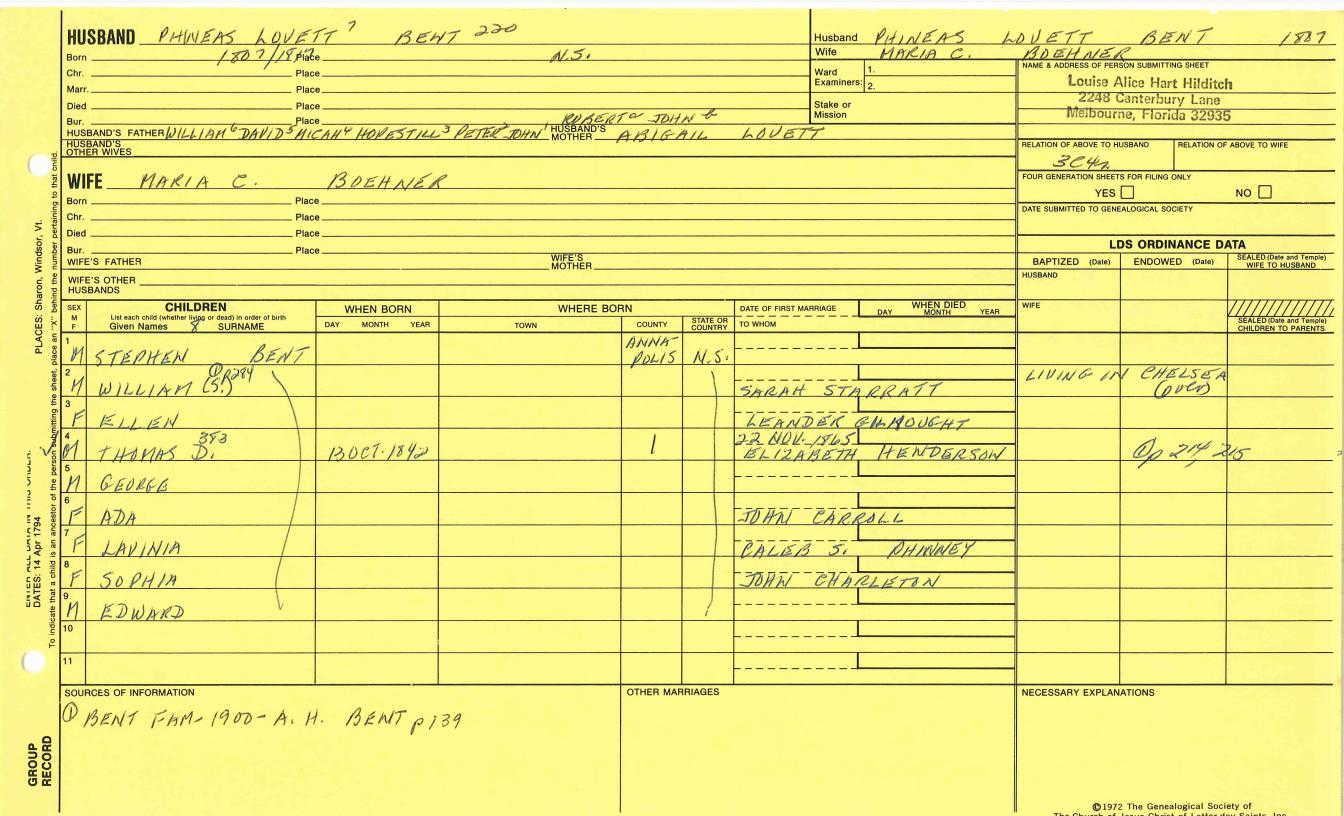 HUSBAND PHINEAS LOVETT 7 BENT 220
Born 1807/ Place N.S.
Chr. Place
Marr. Place
Died Place
Bur. Place
ROBERT a JOHN b
HUSBAND'S FATHER WILLIAM 6 DAVID 5 MICAH 4 HOPESTILL 3 PETER 2 JOHN 1 HUSBAND'S MOTHER ABIGAIL LOVETT
HUSBAND'S OTHER WIVES
Husband PHINEAS LOVETT BENT 1807
Wife MARIA C. BOEHNER
Ward Examiners: 1. 2.
Stake or Mission
NAME & ADDRESS OF PERSON SUBMITTING SHEET
Louise Alice Hart Hilditch
2248 Canterbury Lane
Melbourne, Florida 32935
RELATION OF ABOVE TO HUSBAND RELATION OF ABOVE TO WIFE
3C4R
FOUR GENERATION SHEETS FOR FILING ONLY
YES NO
DATE SUBMITTED TO GENEALOGICAL SOCIETY
WIFE MARIA C. BOEHNER
Born Place
Chr. Place
Died Place
Bur. Place
WIFE'S FATHER WIFE'S MOTHER
WIFE'S OTHER HUSBANDS
LDS ORDINANCE DATA
BAPTIZED (Date) ENDOWED (Date) SEALED (Date and Temple) WIFE TO HUSBAND
HUSBAND
WIFE
SEALED (Date and Temple) CHILDREN TO PARENTS
SEX M F
CHILDREN
List each child (whether living or dead) in order of birth
Given Names 8 SURNAME
WHEN BORN
DAY MONTH YEAR
WHERE BORN
TOWN COUNTY STATE OR COUNTRY
DATE OF FIRST MARRIAGE
TO WHOM
WHEN DIED
DAY MONTH YEAR
1 M STEPHEN BENT ANNAPOLIS N.S.
2 M WILLIAM (S.) ① P284 SARAH STARRATT LIVING IN CHELSEA (OVER)
3 F ELLEN LEANDER
4 M THOMAS D. 383 13 OCT. 1842 22 NOV. 1865 ELIZABETH HENDERSON ① p 214, 215
5 M GEORGE
6 F ADA JOHN CARROLL
7 F LAVINIA CALEB S. PHINNEY
8 F SOPHIA JOHN CHARLETON
9 M EDWARD
10
11
SOURCES OF INFORMATION
① BENT FAM- 1900- A. H. BENT p 139
OTHER MARRIAGES
NECESSARY EXPLANATIONS
©1972 The Genealogical Society of
The Church of Jesus Christ of Latter-day Saints, Inc.
DATES: 14 Apr 1794
PLACES: Sharon, Windsor, Vt.
To indicate that a child is an ancestor of the person submitting the sheet, place an "X" behind the number pertaining to that child.
GROUP RECORD